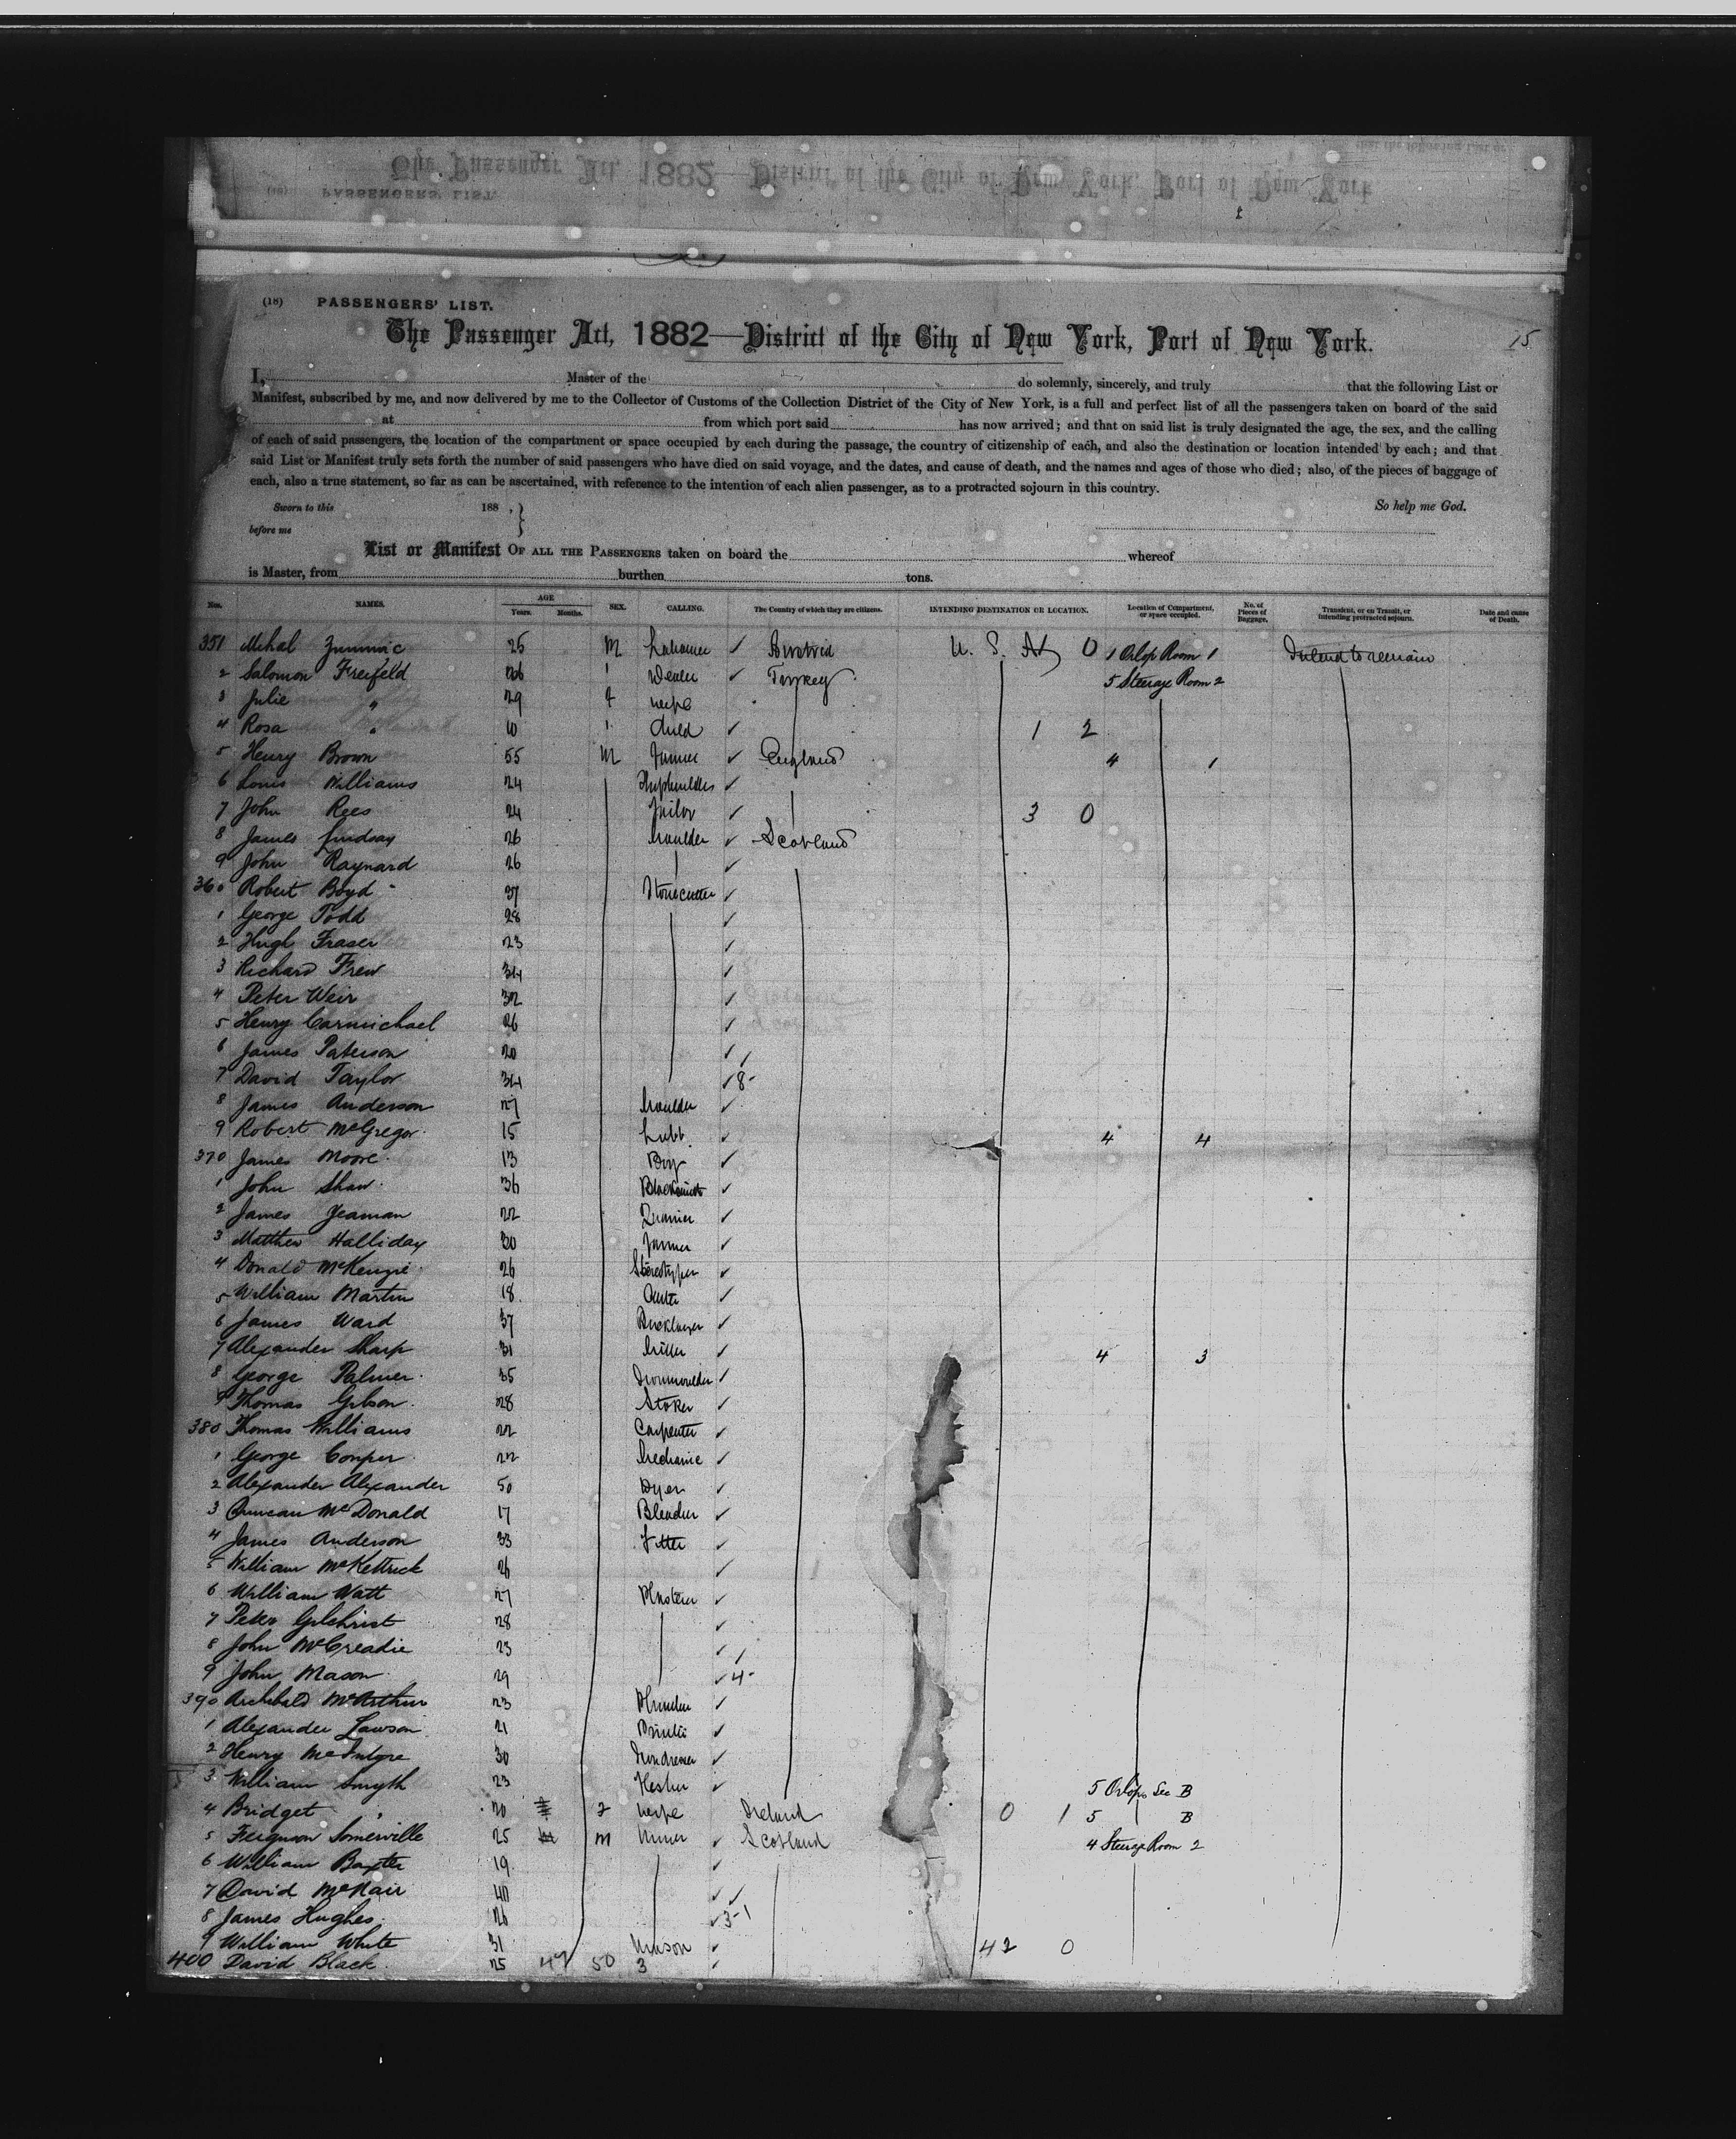 (18) PASSENGERS' LIST.
The Passenger Act, 1882—District of the City of New York, Port of New York.
15
I, Master of the do solemnly, sincerely, and truly that the following List or
Manifest, subscribed by me, and now delivered by me to the Collector of Customs of the Collection District of the City of New York, is a full and perfect list of all the passengers taken on board of the said
at from which port said has now arrived; and that on said list is truly designated the age, the sex, and the calling
of each of said passengers, the location of the compartment or space occupied by each during the passage, the country of citizenship of each, and also the destination or location intended by each; and that
said List or Manifest truly sets forth the number of said passengers who have died on said voyage, and the dates, and cause of death, and the names and ages of those who died; also, of the pieces of baggage of
each, also a true statement, so far as can be ascertained, with reference to the intention of each alien passenger, as to a protracted sojourn in this country.
Sworn to this 188 , } So help me God.
before me
List or Manifest OF ALL THE PASSENGERS taken on board the whereof
is Master, from burthen tons.
Nos. NAMES. AGE Years. Months. SEX. CALLING. The Country of which they are citizens. INTENDING DESTINATION OR LOCATION. Location of Compartment, or space occupied. No. of Pieces of Baggage. Transient, or en Transit, or intending protracted sojourn. Date and cause of Death.
351 Mihal 25 M Labourer ✓ Austria U. S. A 0 1 Orlop Room 1 Intend to remain
2 Salomon Freifeld 26 ✓ Turkey 5 Steerage Room 2
3 Julie " 29 f wife
4 Rosa " 10 Child ✓ 1 2
5 Henry Brown 55 M Farmer ✓ England 4 1
6 Louis Williams 24 ✓
7 John Rees 24 ✓ 3 0
8 James Lindsay 26 Moulder ✓ Scotland
9 John Raynard 26 ✓
360 Robert Boyd 37 Stonecutter ✓
1 George Todd 28 ✓
2 Hugh Fraser 23 ✓
3 Richard Frew 34 ✓
4 Peter Weir 32 ✓
5 Henry Carmichael 26 ✓
6 James Paterson 20 ✓
7 David Taylor 34 ✓ 8-
8 James Anderson 27 Moulder ✓
9 Robert McGregor 15 ✓ 4 4
370 James Moore 13 Boy ✓
1 John Shaw 36 Blacksmith ✓
2 James Yeaman 22 Quarrier ✓
3 Matthew Halliday 30 Farmer ✓
4 Donald McKenzie 26 Stereotyper ✓
5 William Martin 18 ✓
6 James Ward 37 Bricklayer ✓
7 Alexander Sharp 31 Miller ✓ 4 3
8 George Palmer 35 Ironmoulder ✓
9 Thomas Gibson 28 Stoker ✓
380 Thomas Williams 22 Carpenter ✓
1 George Comper 22 Mechanic ✓
2 Alexander Alexander 50 Dyer ✓
3 Duncan McDonald 17 Bleacher ✓
4 James Anderson 33 Fitter ✓
5 William McKettrick 26 ✓
6 William Watt 27 Plasterer ✓
7 Peter Gilchrist 28 ✓
8 John McCreadie 23 ✓
9 John Mason 29 ✓ 4-
390 Archibald McArthur 23 Plumber ✓
1 Alexander Lawson 21 Printer ✓
2 Henry McIntyre 30 Irondresser ✓
3 William Smyth 23 ✓ 5 Orlop Sec B
4 Bridget " 20 f wife Ireland 0 1 5 B
5 Ferguson Somerville 25 M Miner ✓ Scotland 4 Steerage Room 2
6 William Baxter 19 ✓
7 David McNair 40 ✓
8 James Hughes 26 ✓ 3-1
9 William White 31 Mason ✓ 42 0
400 David Black 25 47 50 3 ✓